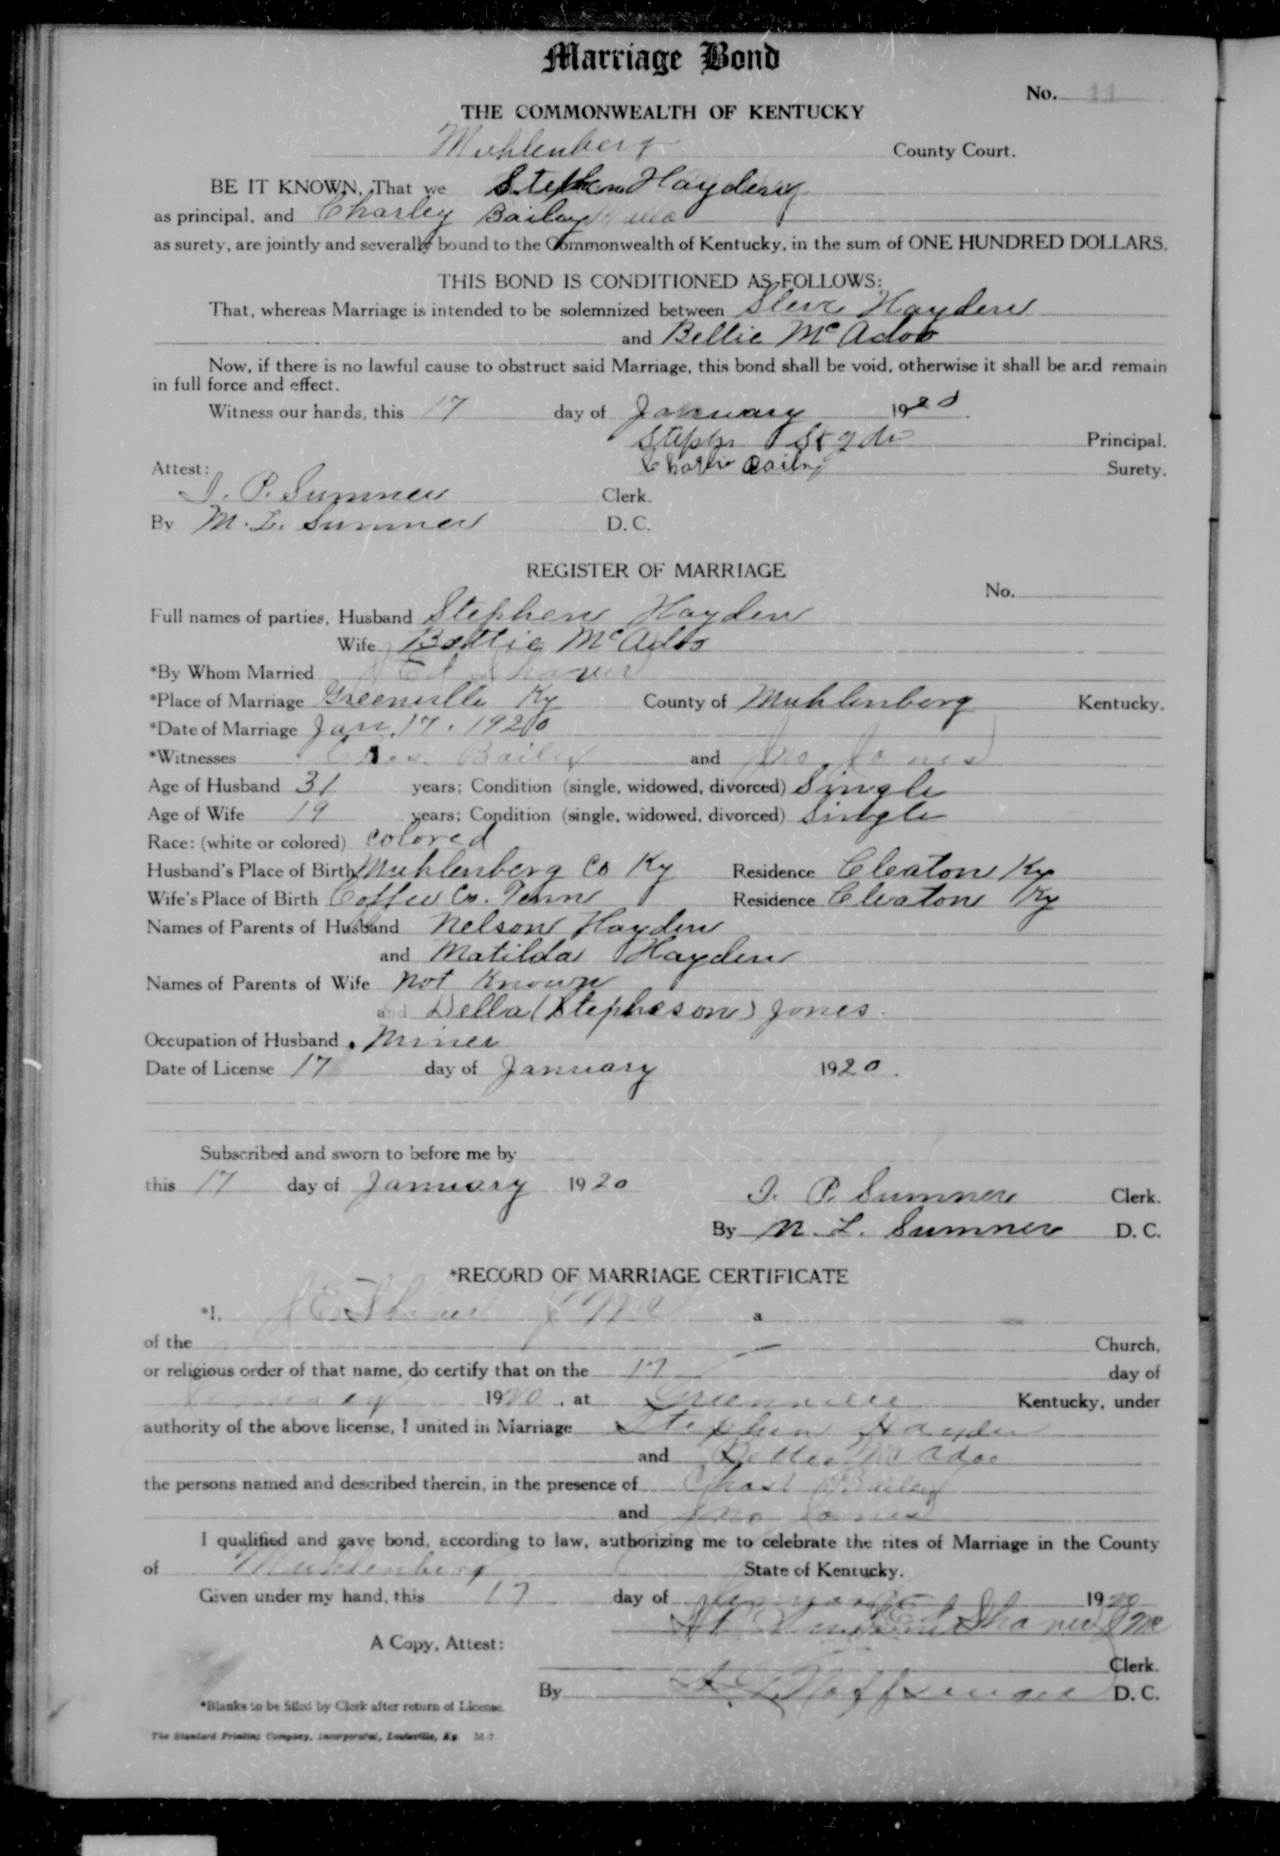 Marriage Bond
No. 11
THE COMMONWEALTH OF KENTUCKY
Muhlenberg County Court.
BE IT KNOWN, That we Stephen Hayden
as principal, and Charley Bailey
as surety, are jointly and severally bound to the Commonwealth of Kentucky, in the sum of ONE HUNDRED DOLLARS.
THIS BOND IS CONDITIONED AS FOLLOWS:
That, whereas Marriage is intended to be solemnized between Steve Hayden
and Bettie McAdoo
Now, if there is no lawful cause to obstruct said Marriage, this bond shall be void, otherwise it shall be and remain
in full force and effect.
Witness our hands, this 17 day of January 1920
Principal.
Charlie Bailey Surety.
Attest:
I. P. Sumner Clerk.
By M. L. Sumner D. C.
REGISTER OF MARRIAGE
No.
Full names of parties, Husband Stephen Hayden
Wife Bettie McAdoo
*By Whom Married J Ed Shaver
*Place of Marriage Greenville Ky County of Muhlenberg Kentucky.
*Date of Marriage Jan. 17. 1920
*Witnesses Chas. Bailey and Jno Jones
Age of Husband 31 years; Condition (single, widowed, divorced) Single
Age of Wife 19 years; Condition (single, widowed, divorced) Single
Race: (white or colored) colored
Husband's Place of Birth Muhlenberg Co Ky Residence Cleaton Ky
Wife's Place of Birth Coffee Co. Tenn Residence Cleaton Ky
Names of Parents of Husband Nelson Hayden
and Matilda Hayden
Names of Parents of Wife Not Known
and Della (Stepheson) Jones.
Occupation of Husband Miner
Date of License 17 day of January 1920.
Subscribed and sworn to before me by
this 17 day of January 1920
I. P. Sumner Clerk.
By M. L. Sumner D. C.
*RECORD OF MARRIAGE CERTIFICATE
*I, J E Shaver J M C a
of the Church,
or religious order of that name, do certify that on the 17 day of
January 1920, at Greenville Kentucky, under
authority of the above license, I united in Marriage Stephen Hayden
and Bettie McAdoo
the persons named and described therein, in the presence of Chas Bailey
and Jno Jones
I qualified and gave bond, according to law, authorizing me to celebrate the rites of Marriage in the County
of Muhlenberg State of Kentucky.
Given under my hand, this 17 day of January 1920
Ed Shaver J M C
A Copy, Attest:
Clerk.
By D. C.
*Blanks to be filled by Clerk after return of License.
The Standard Printing Company, Incorporated, Louisville, Ky. M-7